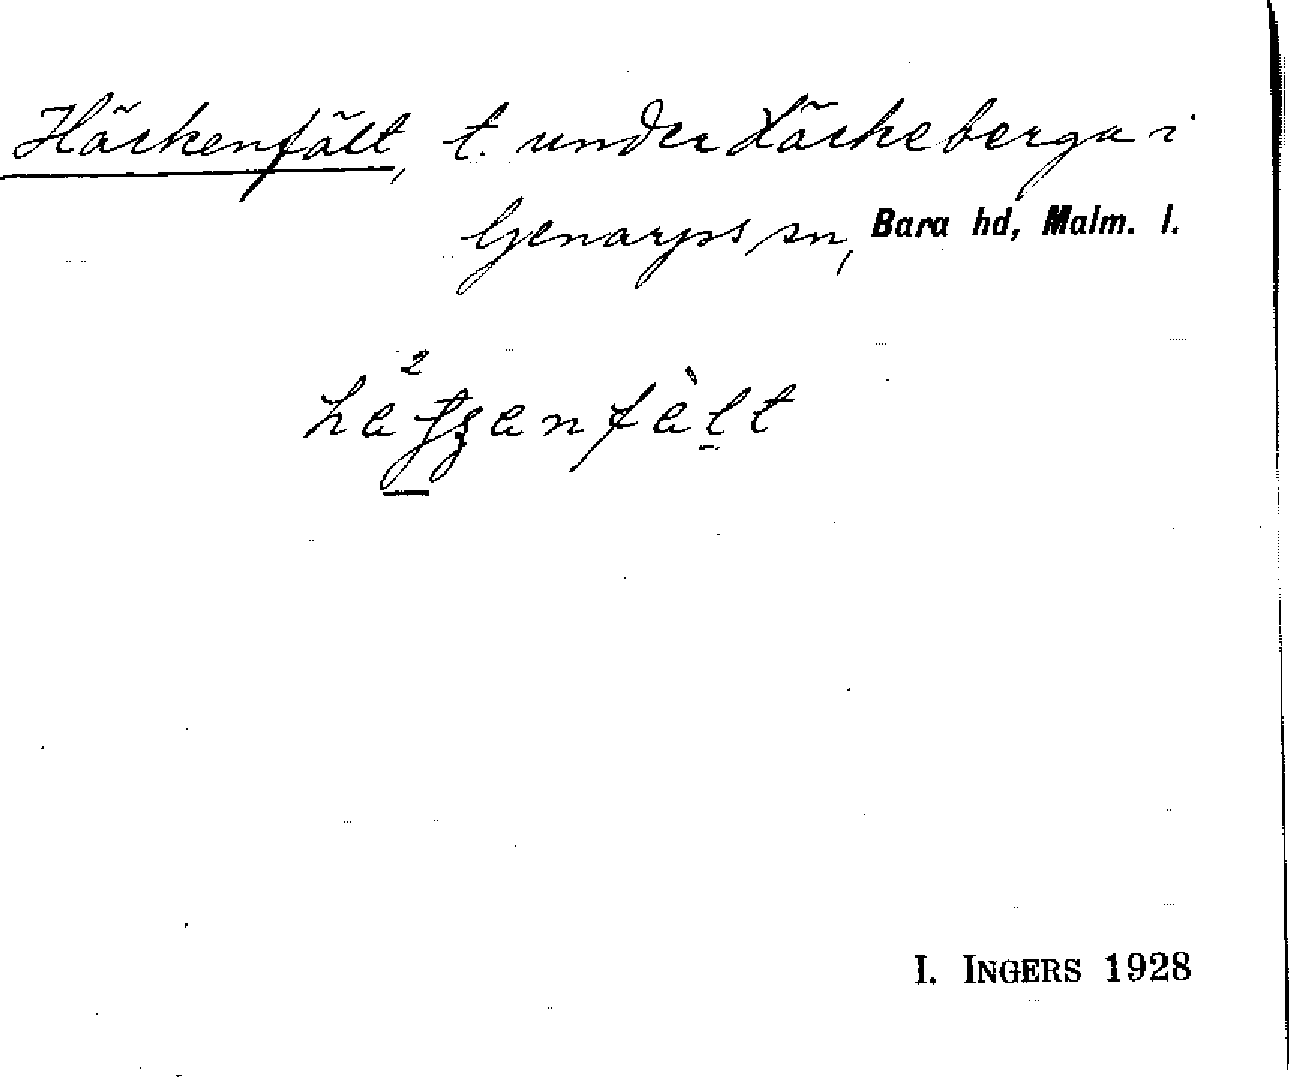 Häckenfält, t. under Häckeberga i
Genarps sn, Bara hd, Malm. l.
I. INGERS 1928